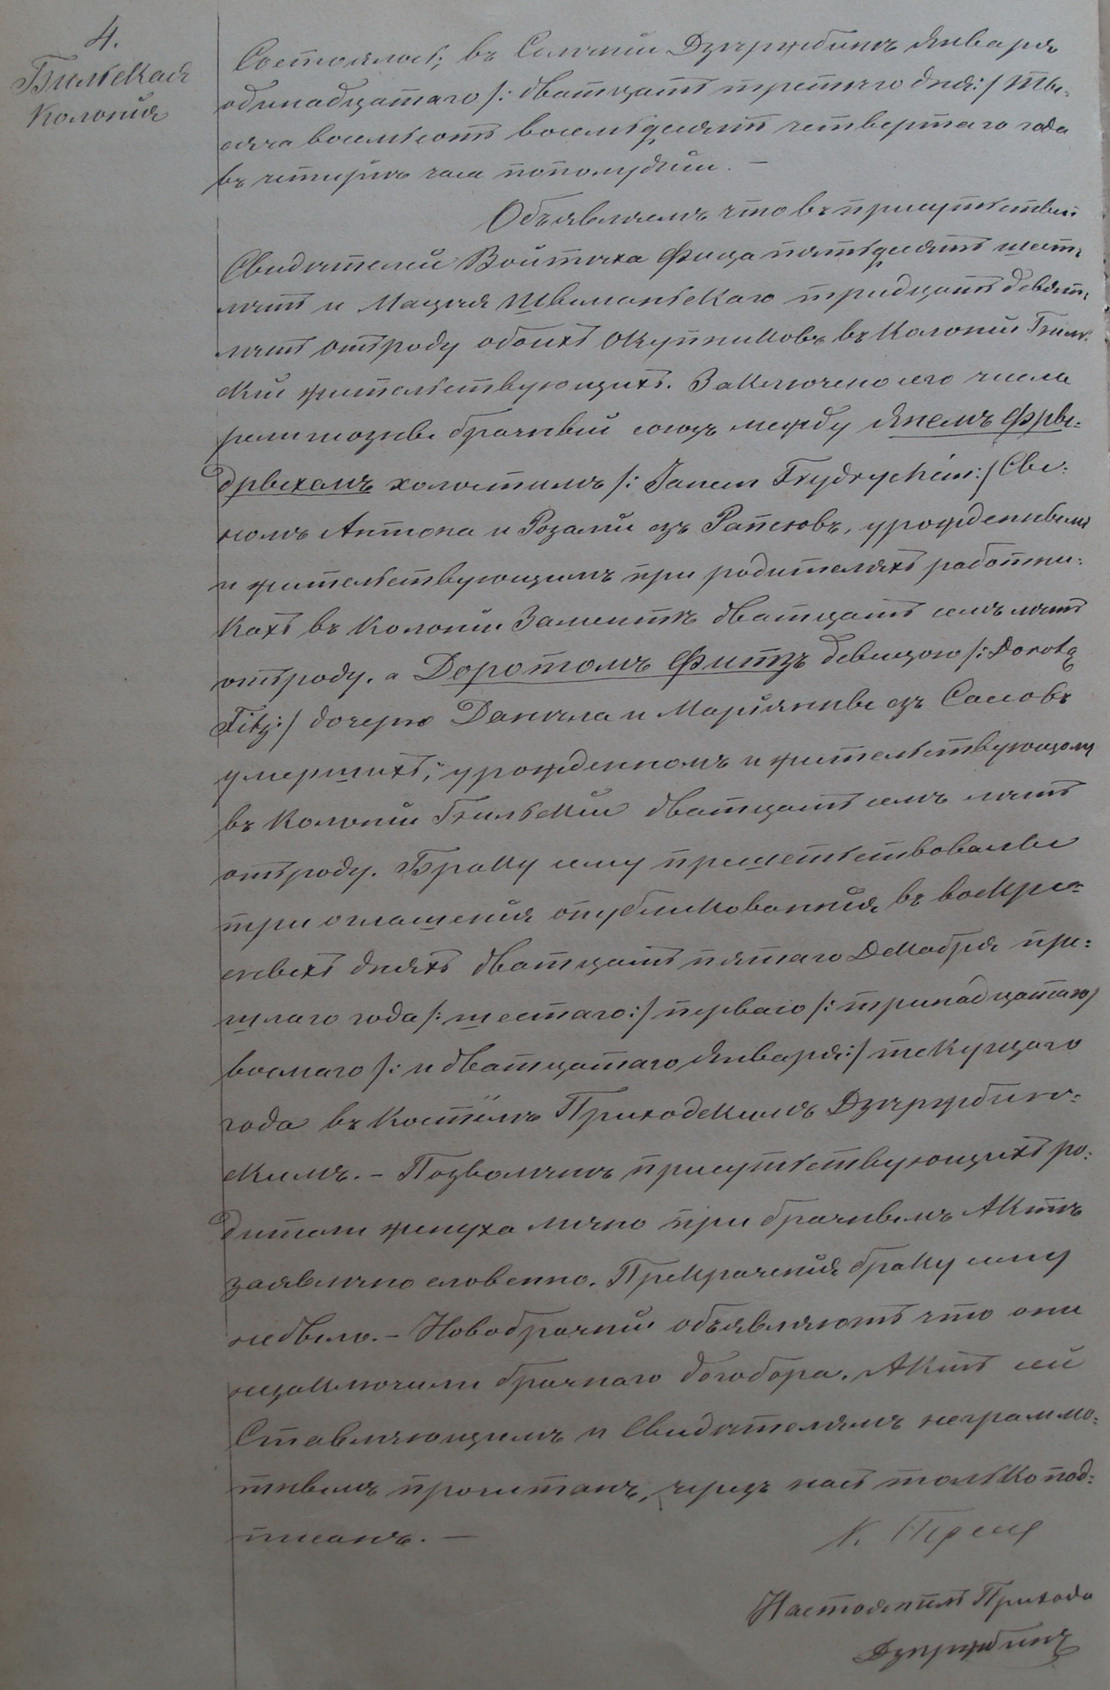 4.
Бильская
Колонія
Состоялось; въ Селеніи Дзержбинъ Января
одинадцатаго /: дватцать третяго дня:/ Ты-
сяча восемьсотъ восемьдесятъ четвертаго года
въ четыри часа пополудни. —
Объявляемъ что въ присутствіи
Свидѣтелей Войтѣха Фица пятьдесятъ шесть
лѣтъ и Мацѣя Шеманьскаго тридцать девять
лѣтъ отъ роду обоихъ Окупниковъ въ Колоніи Биль-
скій жительствующихъ. Заключено сего числа
религіозны брачный союзъ между Янемъ Фры-
дрыхомъ холостымъ /: Janem Frydrychem:/ Сы-
номъ Антона и Розаліи изъ Рапсювъ, урожденнымъ
и жительствующимъ при родителяхъ работни-
кахъ въ Колоніи Замостkъ дватцать семъ лѣтъ
отъ роду. а Доротомъ Фитзъ девицою /: Dorotą
Fitz:/ дочерю Данѣла и Маріянны изъ Сасовъ
умершихъ; урожденномъ и жительствующому
въ Колоніи Бильскій дватцать семъ лѣтъ
отъ роду. Браку сему прешетьствовалы
три оглашенія опубликованнія въ воскре-
сныхъ дняхъ дватцать пятаго Декабря про-
шлаго года /: шестаго:/ перваго /: тринадцатаго/
восмаго /: и дватцатаго Января:/ текущаго
года въ Костёлѣ Приходскимъ Дзержбинс-
кимъ. – Позволѣнѣ присутьствующихъ ро-
дители жениха лично при брачнымъ Актѣ
заявлѣно словенно. Прекраченія браку сему
небыло. – Новобрачніи объявляютъ что они
незаключили брачнаго договора. Актъ сей
Ставляющимъ и Свидѣтелямъ неграммо-
тнымъ прочитанъ, черезъ насъ только под-
писанъ. —
Настоятель Прихода
Дзержбинъ